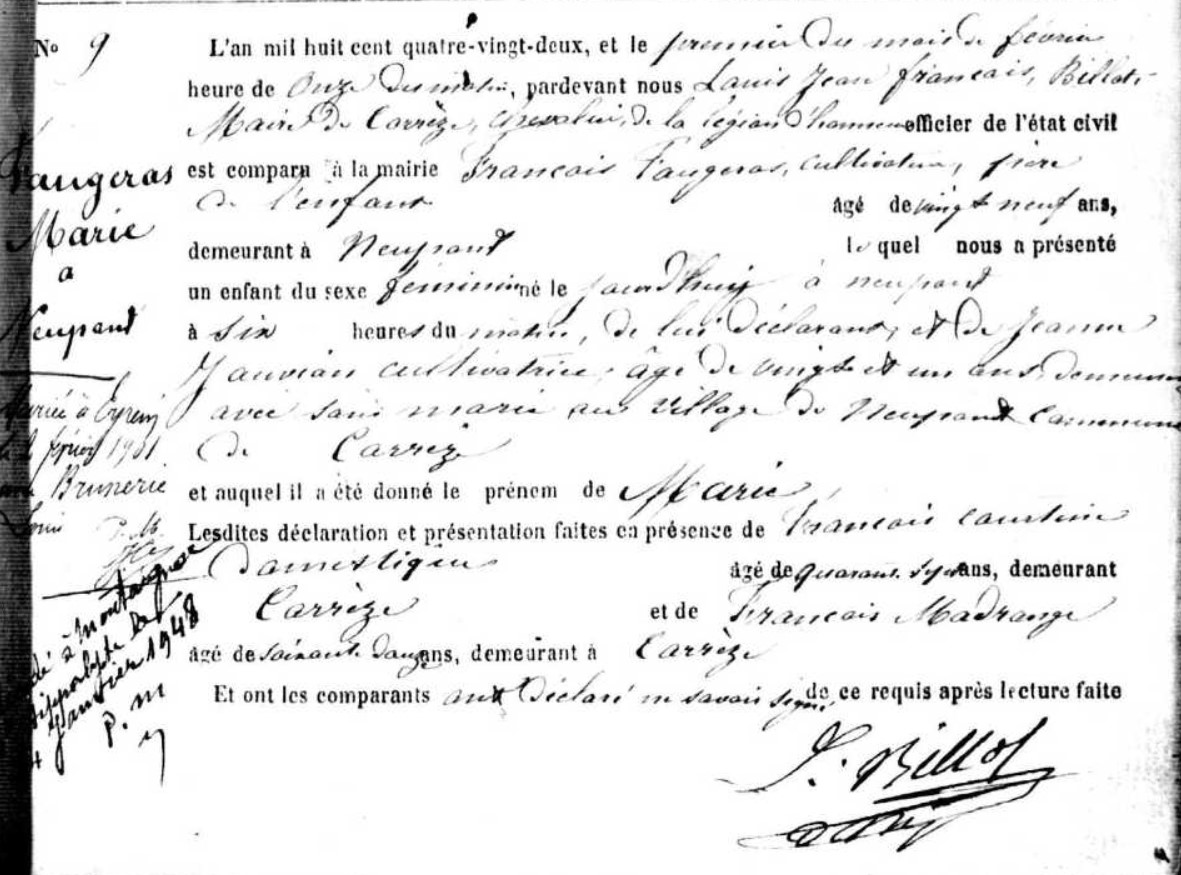 N° 9
Faugeras
Marie
a
Neupont
Mariée à Eyrein
février 1901
Brunerie
Louis P. M.
à Montaignac
St Hippolyte le
4 Janvier 1948
P. M
L'an mil huit cent quatre-vingt-deux, et le premier du mois de février
heure de Onze du matin, pardevant nous Louis Jean françois, Billot,
Maire de Corrèze, chevalier, de la légion d'honneur officier de l'état civil
est comparu à la mairie François Faugeras, cultivateur, père
de l'enfant âgé de vingt neuf ans,
demeurant à Neupont lequel nous a présenté
un enfant du sexe féminin né le jourd'huy à neupont
à Six heures du matin, de lui déclarant, et de Jeanne
cultivatrice, âgé de vingt et un ans,
avec son marie au village de Neupont Commune
de Corrèze
et auquel il a été donné le prénom de Marie,
Lesdites déclaration et présentation faites en présence de François
Domestique âgé de quarante ans, demeurant
Corrèze et de François Madrange
âgé de soixante douze ans, demeurant à Corrèze
Et ont les comparants ont déclaré ne savoir signé, de ce requis après lecture faite
Billot